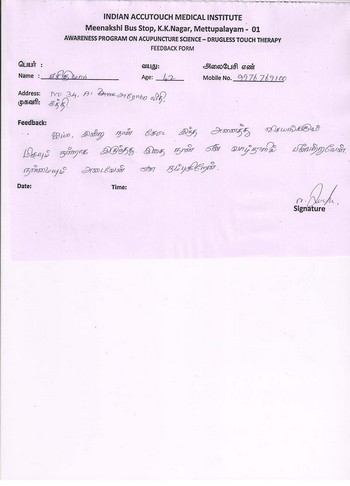 INDIAN ACCUTOUCH MEDICAL INSTITUTE
Meenakshi Bus Stop, K.K.Nagar, Mettupalayam - 01
AWARENESS PROGRAM ON ACUPUNCTURE SCIENCE – DRUGLESS TOUCH THERAPY
FEEDBACK FORM
பெயர் : வயது: அலைபேசி எண்
Name : Age: 42 Mobile No. 9976769100
Address: No 34, A!
முகவரி:
Feedback:
ஐயா, இன்று நான் கேட்ட இந்த அனைத்து
மிகவும் நன்றாக இருந்தது. இதை நான் என் வாழ்நாளில் பின்பற்றுவேன்.
நன்மையும் அடைவேன் என நம்புகிறேன்.
Date: Time:
Signature